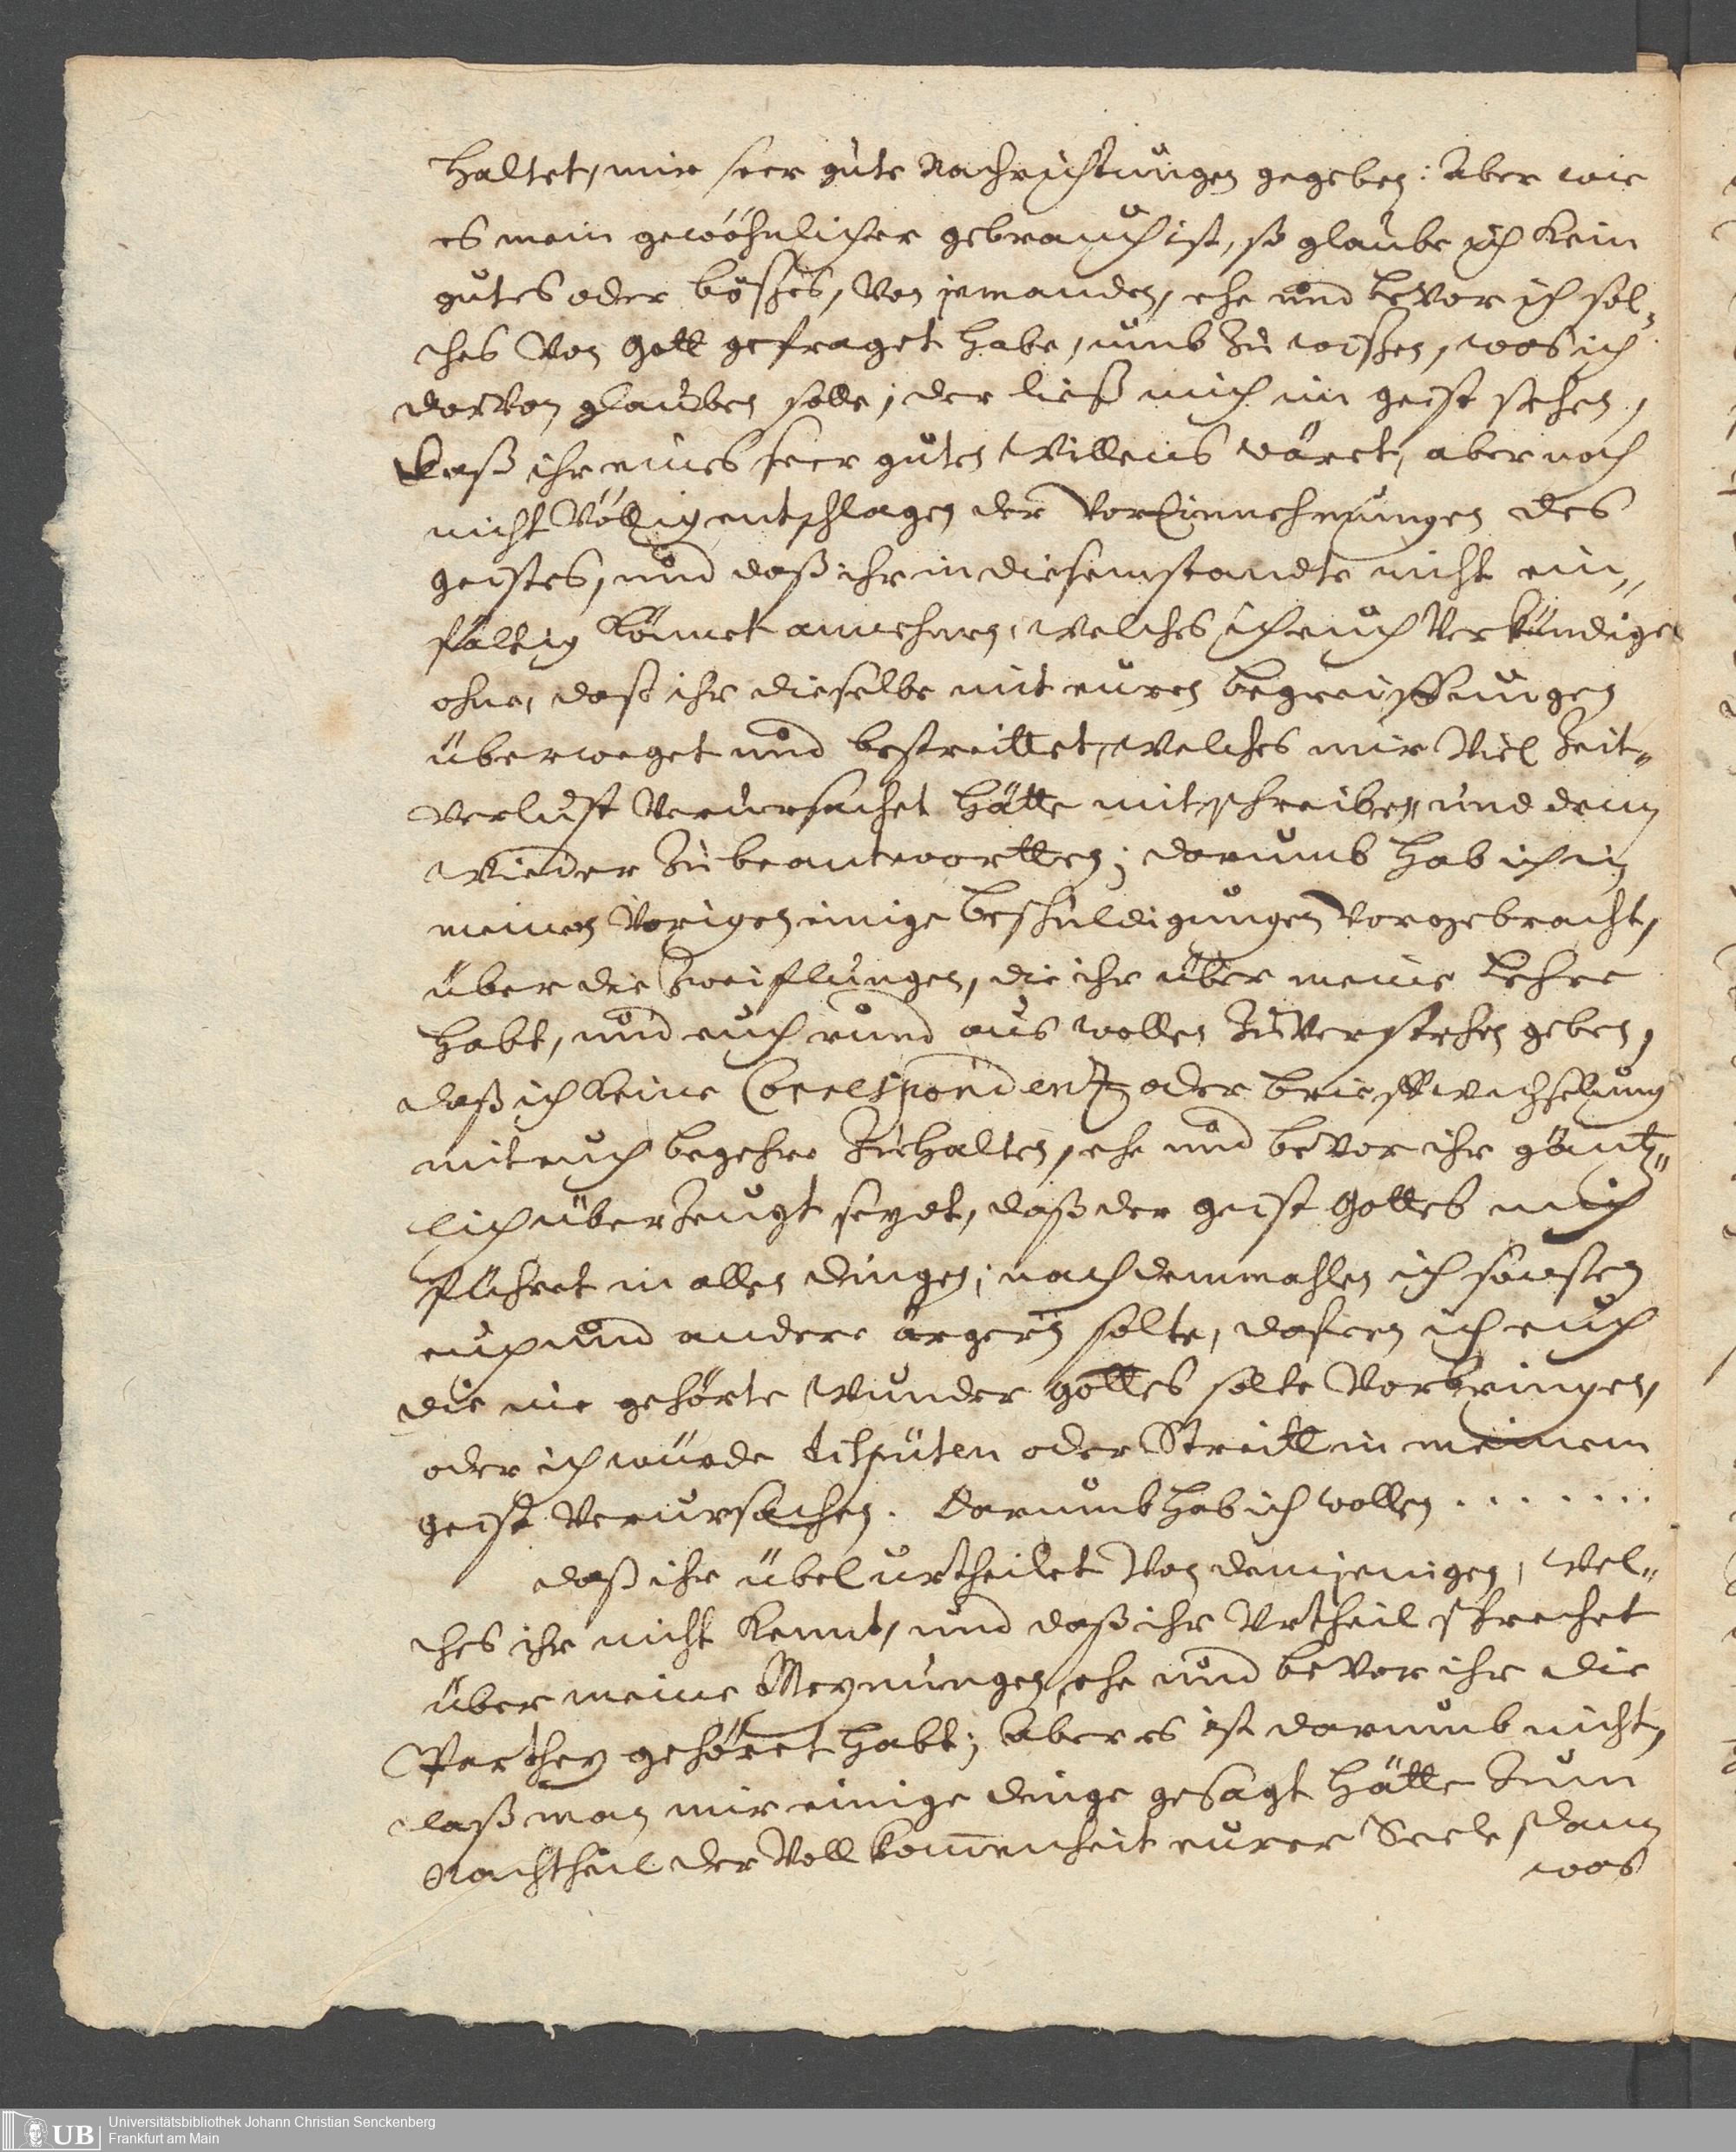 haltet, mir seer gute Nachrichtungen gegeben: Aber wie
es mein gewöhnlicher gebrauch ist, so glaube ich kein
gutes oder böses, von jemanden, ehe und bevor ich sol„
ches von Gott gefraget habe, umb zu wißen, was ich
darvon glauben solle; der ließ mich im geist sehen,
daß ihr eines seer guten Willens wäret, aber noch
nicht völlig entschlagen der Voreinnehmungen des
geistes, und daß ihr in diesem stande nicht ein„
fältig könnet annehmen, welches ich euch verkündige
ohne, daß ihr dieselbe mit euren begreiffungen
überweget und bestreittet, welches mir viel Zeit„
verlust verursachet hätte mit schreiben, und denn
wieder zu beantwortten; darumb hab ich in
meinen vorigen einige beschuldigungen vorgebracht,
über die Zweiflungen, die ihr über meine Lehre
habt, und euch rund aus wollen zu verstehen geben,
daß ich keine Correspondentz oder brieffwechselung
mit euch begehre zu halten, ehe und bevor ihr gäntz„
lich überzeugt seydt, daß der geist Gottes mich
führet in allen dingen; nachdemmahlen ich sonsten
euch und andere ärgern solte, dafern ich euch
die nie gehörte Wunder gottes solte vorbringen,
oder ich würde disputen oder Streitt in meinem
geist verursachen. Darumb hab ich wollen . . . . . . .
daß ihr übel urtheilet von demjenigen, wel„
ches ihr nicht kennt, und daß ihr Urtheil sprechet
über meine Meynungen, ehe und bevor ihr die
Parthey gehöret habt; Aber es ist darumb nicht,
daß man mir einige dinge gesagt hätte zum
Nachtheil der Vollkom̄enheit eurer Seele, dann
was
Universitätsbibliothek Johann Christian Senckenberg
Frankfurt am Main
UB